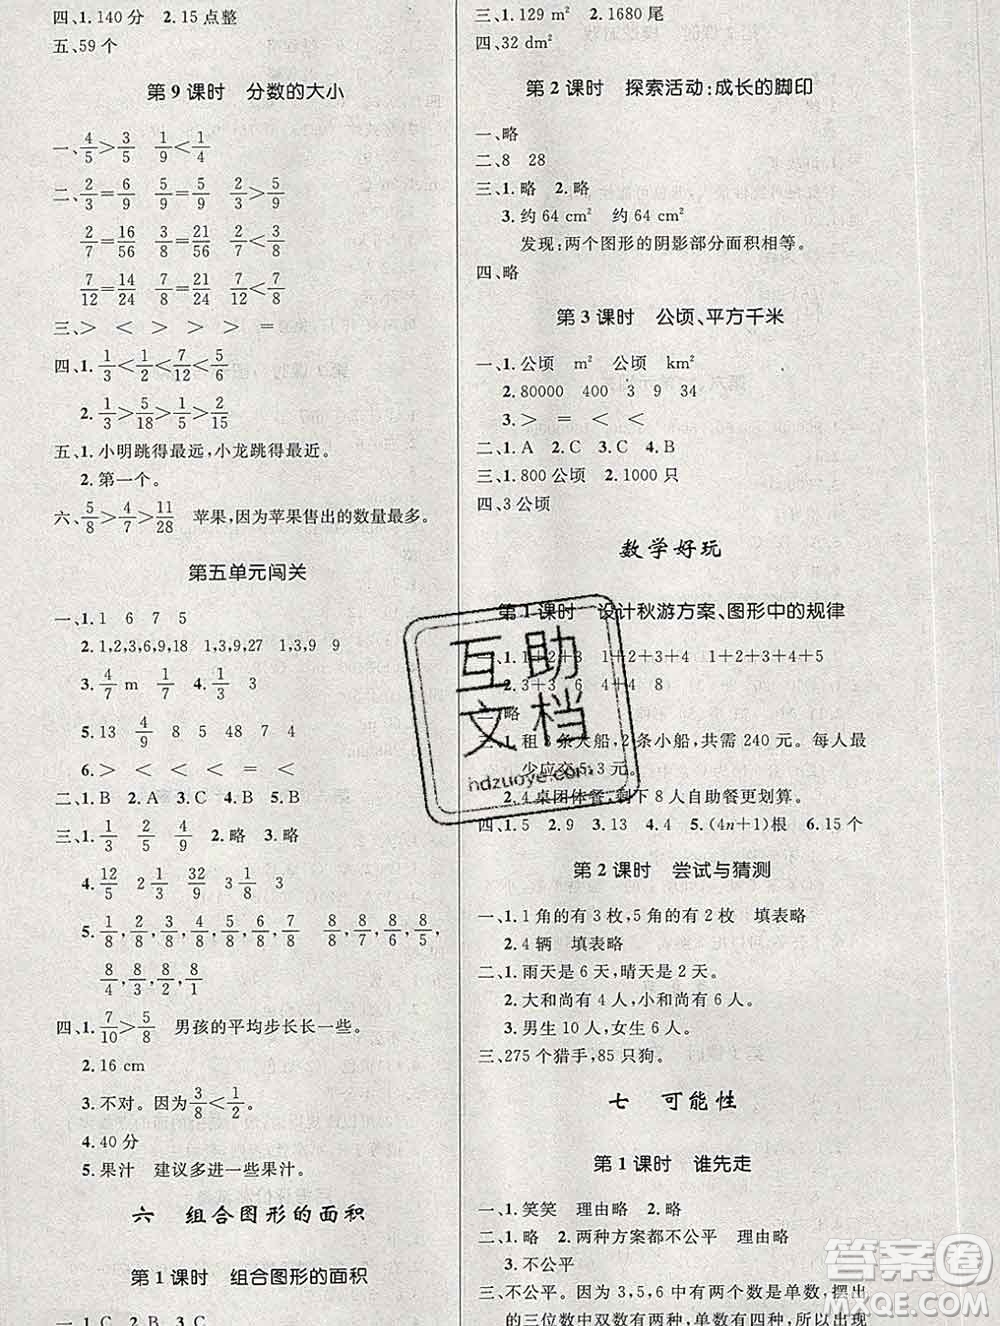 四、1. 140分 2. 15点整
五、59个
第9课时 分数的大小
一、4/5>3/5 1/9<1/4
二、2/3=6/9 5/9=5/9 2/3>5/9
2/7=16/56 3/8=21/56 2/7<3/8
7/12=14/24 7/8=21/24 7/12<7/8
三、> < > > > =
四、1. 1/3<1/2<7/12<5/6
2. 1/3>5/18>1/5>2/15
五、1. 小明跳得最远，小龙跳得最近。
2. 第一个。
六、5/8>4/7>11/28 苹果，因为苹果售出的数量最多。
第五单元闯关
一、1. 1 6 7 5
2. 1,2,3,6,9,18 1,3,9,27 1,3,9 9
3. 4/7 m 1/7 4. 1/3 3
5. 13 4/9 8 5 48 7
6. > < > < > =
二、1. B 2. A 3. C 4. B 5. C
三、1. 1/3 2/3 4/9 2. 略 3. 略
4. 12/5 2 1/2 32/9 3 1/3
5. 1/8,2/8,3/8,4/8,5/8,6/8,7/8 8/8,8/7,8/6,8/5,
8/4,8/3,8/2,8/1
四、1. 7/10>5/8 男孩的平均步长长一些。
2. 16 cm
3. 不对。因为3/8<1/2。
4. 40分
5. 果汁 建议多进一些果汁。
六 组合图形的面积
第1课时 组合图形的面积
一、1. C 2. B 3. C
三、1. 129 m² 2. 1680尾
四、32 dm²
第2课时 探索活动：成长的脚印
一、略
二、8 28
三、1. 略 2. 略
3. 约64 cm² 约64 cm²
发现：两个图形的阴影部分面积相等。
四、略
第3课时 公顷、平方千米
一、1. 公顷 m² 公顷 km²
2. 80000 400 3 9 34
3. > = < < <
二、1. A 2. C 3. C 4. B
三、1. 800公顷 2. 1000只
四、3公顷
数学好玩
第1课时 设计秋游方案、图形中的规律
一、1. 1+2+3 1+2+3+4 1+2+3+4+5
2. 3+3 6 4+4 8
略
三、1. 租3条大船，2条小船，共需240元。每人最
少应交5.3元。
2. 4桌团体餐，剩下8人自助餐更划算。
四、1. 5 2. 9 3. 13 4. 4 5. (4n+1)根 6. 15个
第2课时 尝试与猜测
一、1. 1角的有3枚，5角的有2枚 填表略
2. 4辆 填表略
二、1. 雨天是6天，晴天是2天。
2. 大和尚有4人，小和尚有4人。
3. 男生10人，女生6人。
三、275个猎手，85只狗。
七 可能性
第1课时 谁先走
一、1. 笑笑 理由略 2. 略
二、1. 略 2. 两种方案都不公平 理由略
3. 不公平
三、不公平。因为3，5，6中有两个数是单数，组成
的三位数中双数有两种，单数有四种，所以
互助文档
hdzuoye.com
答案圈
MXQE.COM